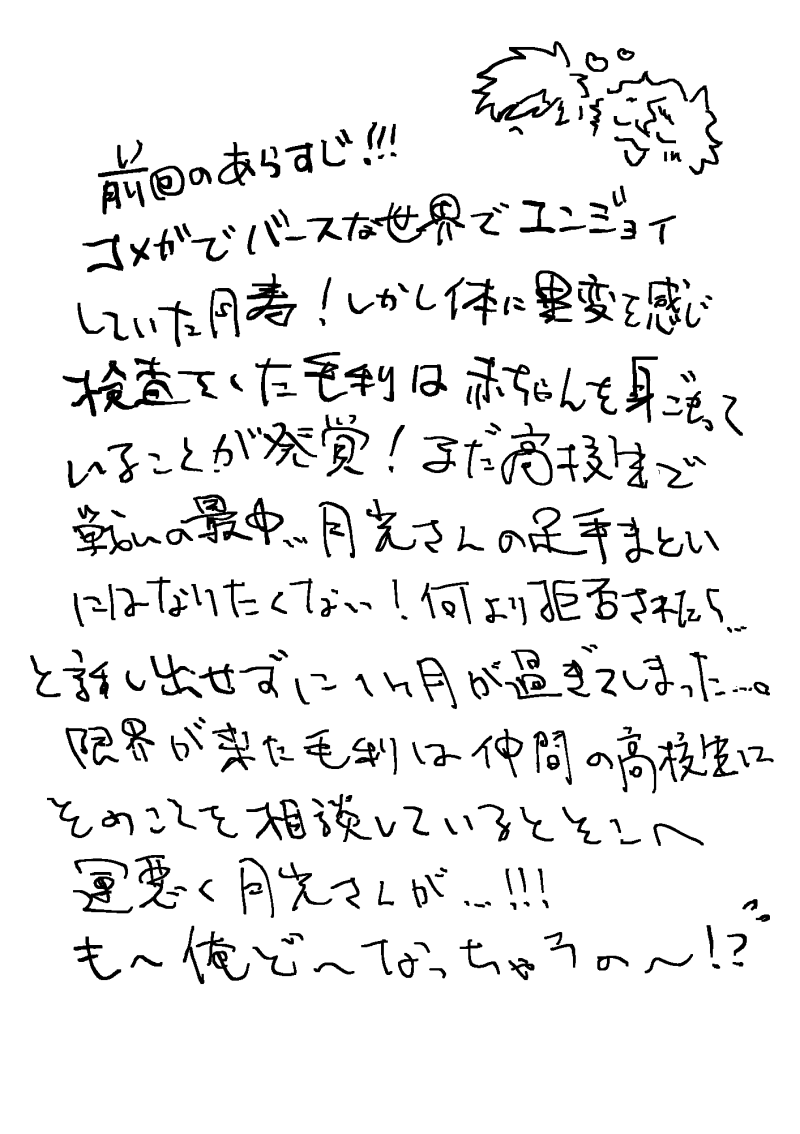 前回のあらすじ!!!
コメガでバースな世界でエンジョイ
していた月寿!しかし体に異変を感じ
検査をした毛利は赤ちゃんを身ごもって
いることが発覚!まだ高校生で
戦いの最中...月光さんの足手まとい
にはなりたくない!何より拒否されたら...
と話し出せずに1ヶ月が過ぎてしまった...。
限界が来た毛利は仲間の高校生に
そのことを相談しているとそこへ
運悪く月光さんが...!!!
も〜俺ど〜なっちゃうの〜!?